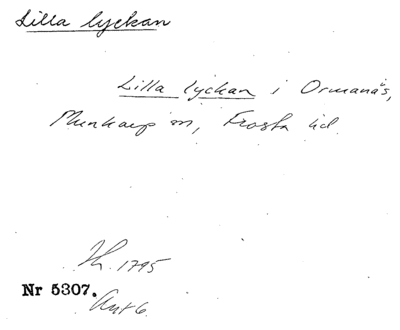 Lilla lyckan
Lilla lyckan i Ormanäs,
Munkarp sn, Frosta hd.
1795
Nr 5307.